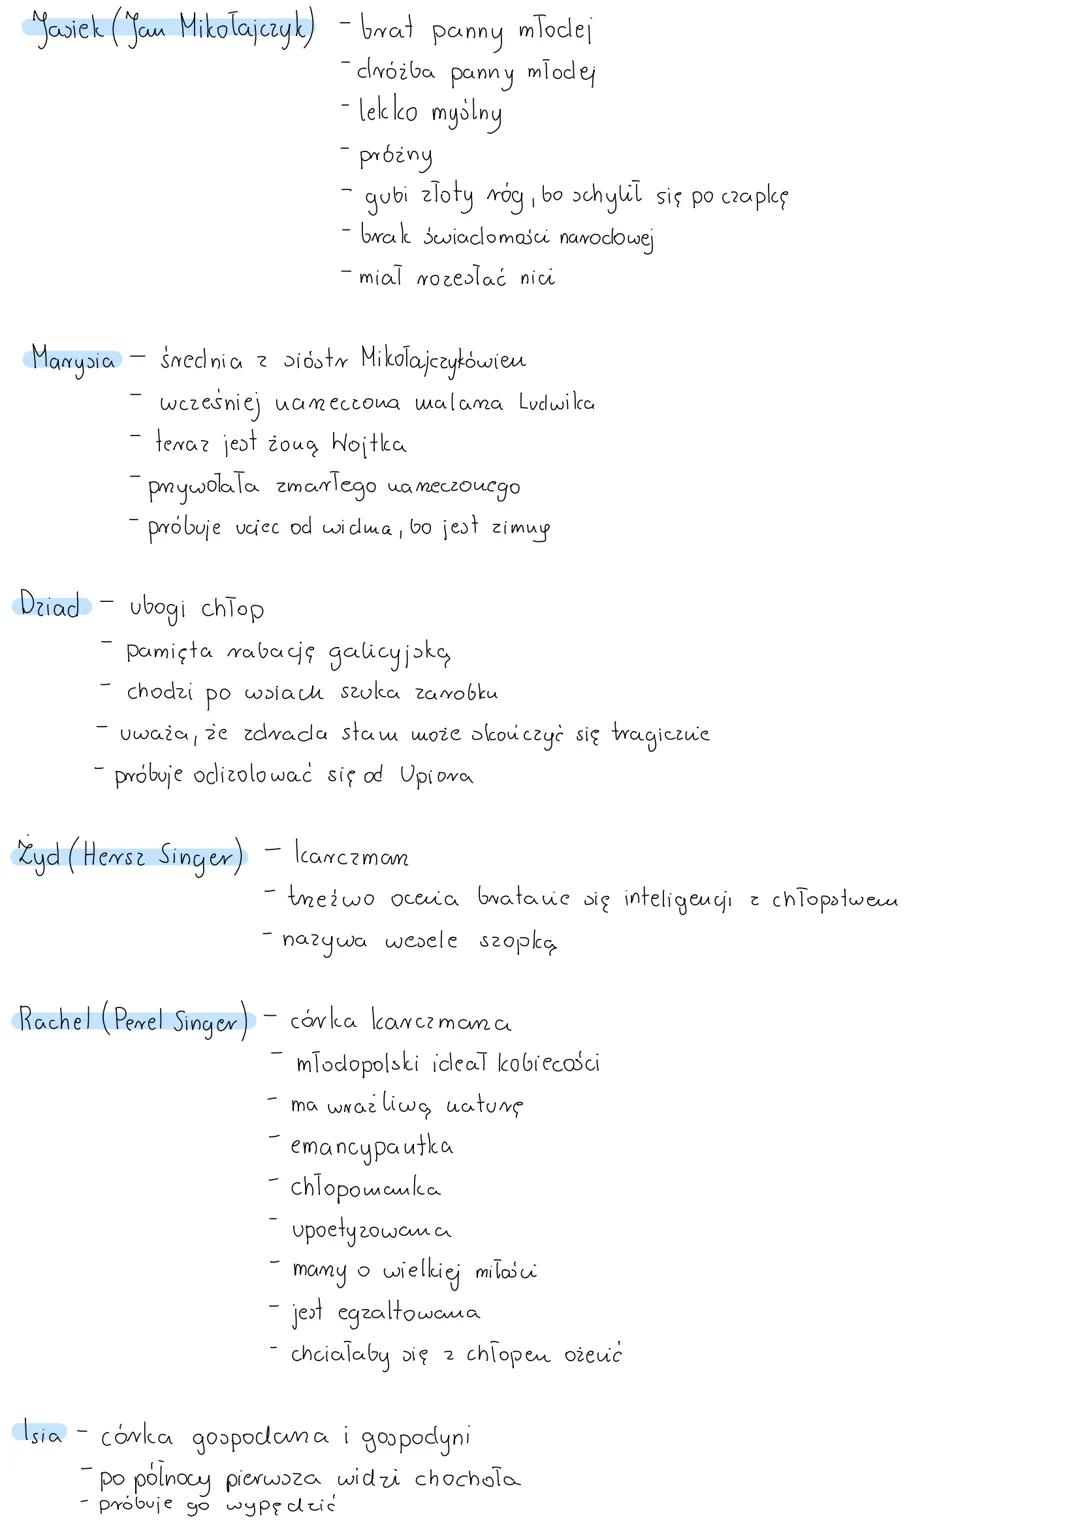 Jasiek (Jan Mikołajczyk) - brat panny młodej
- dróżba panny młodej
- lekko myślny
- próżny
- gubi złoty róg, bo schylił się po czapkę
- brak świadomości narodowej
- miał rozesłać nici
Marysia - średnia z sióstr Mikołajczykówien
- wcześniej narzeczona malarza Ludwika
- teraz jest żoną Wojtka
- przywołała zmarłego narzeczonego
- próbuje uciec od widma, bo jest zimny
Dziad - ubogi chłop
- pamięta rabację galicyjską
- chodzi po wsiach szuka zarobku
- uważa, że zdrada stanu może skończyć się tragicznie
- próbuje odizolować się od Upiora
Żyd (Hersz Singer) - karczmarz
- trzeźwo ocenia bratanie się inteligencji z chłopstwem
- nazywa wesele szopką
Rachel (Perel Singer) - córka karczmarza
- młodopolski ideał kobiecości
- ma wrażliwą naturę
- emancypantka
- chłopomanka
- upoetyzowana
- marzy o wielkiej miłości
- jest egzaltowana
- chciałaby się z chłopem ożenić
Isia - córka gospodarza i gospodyni
- po północy pierwsza widzi chochoła
- próbuje go wypędzić